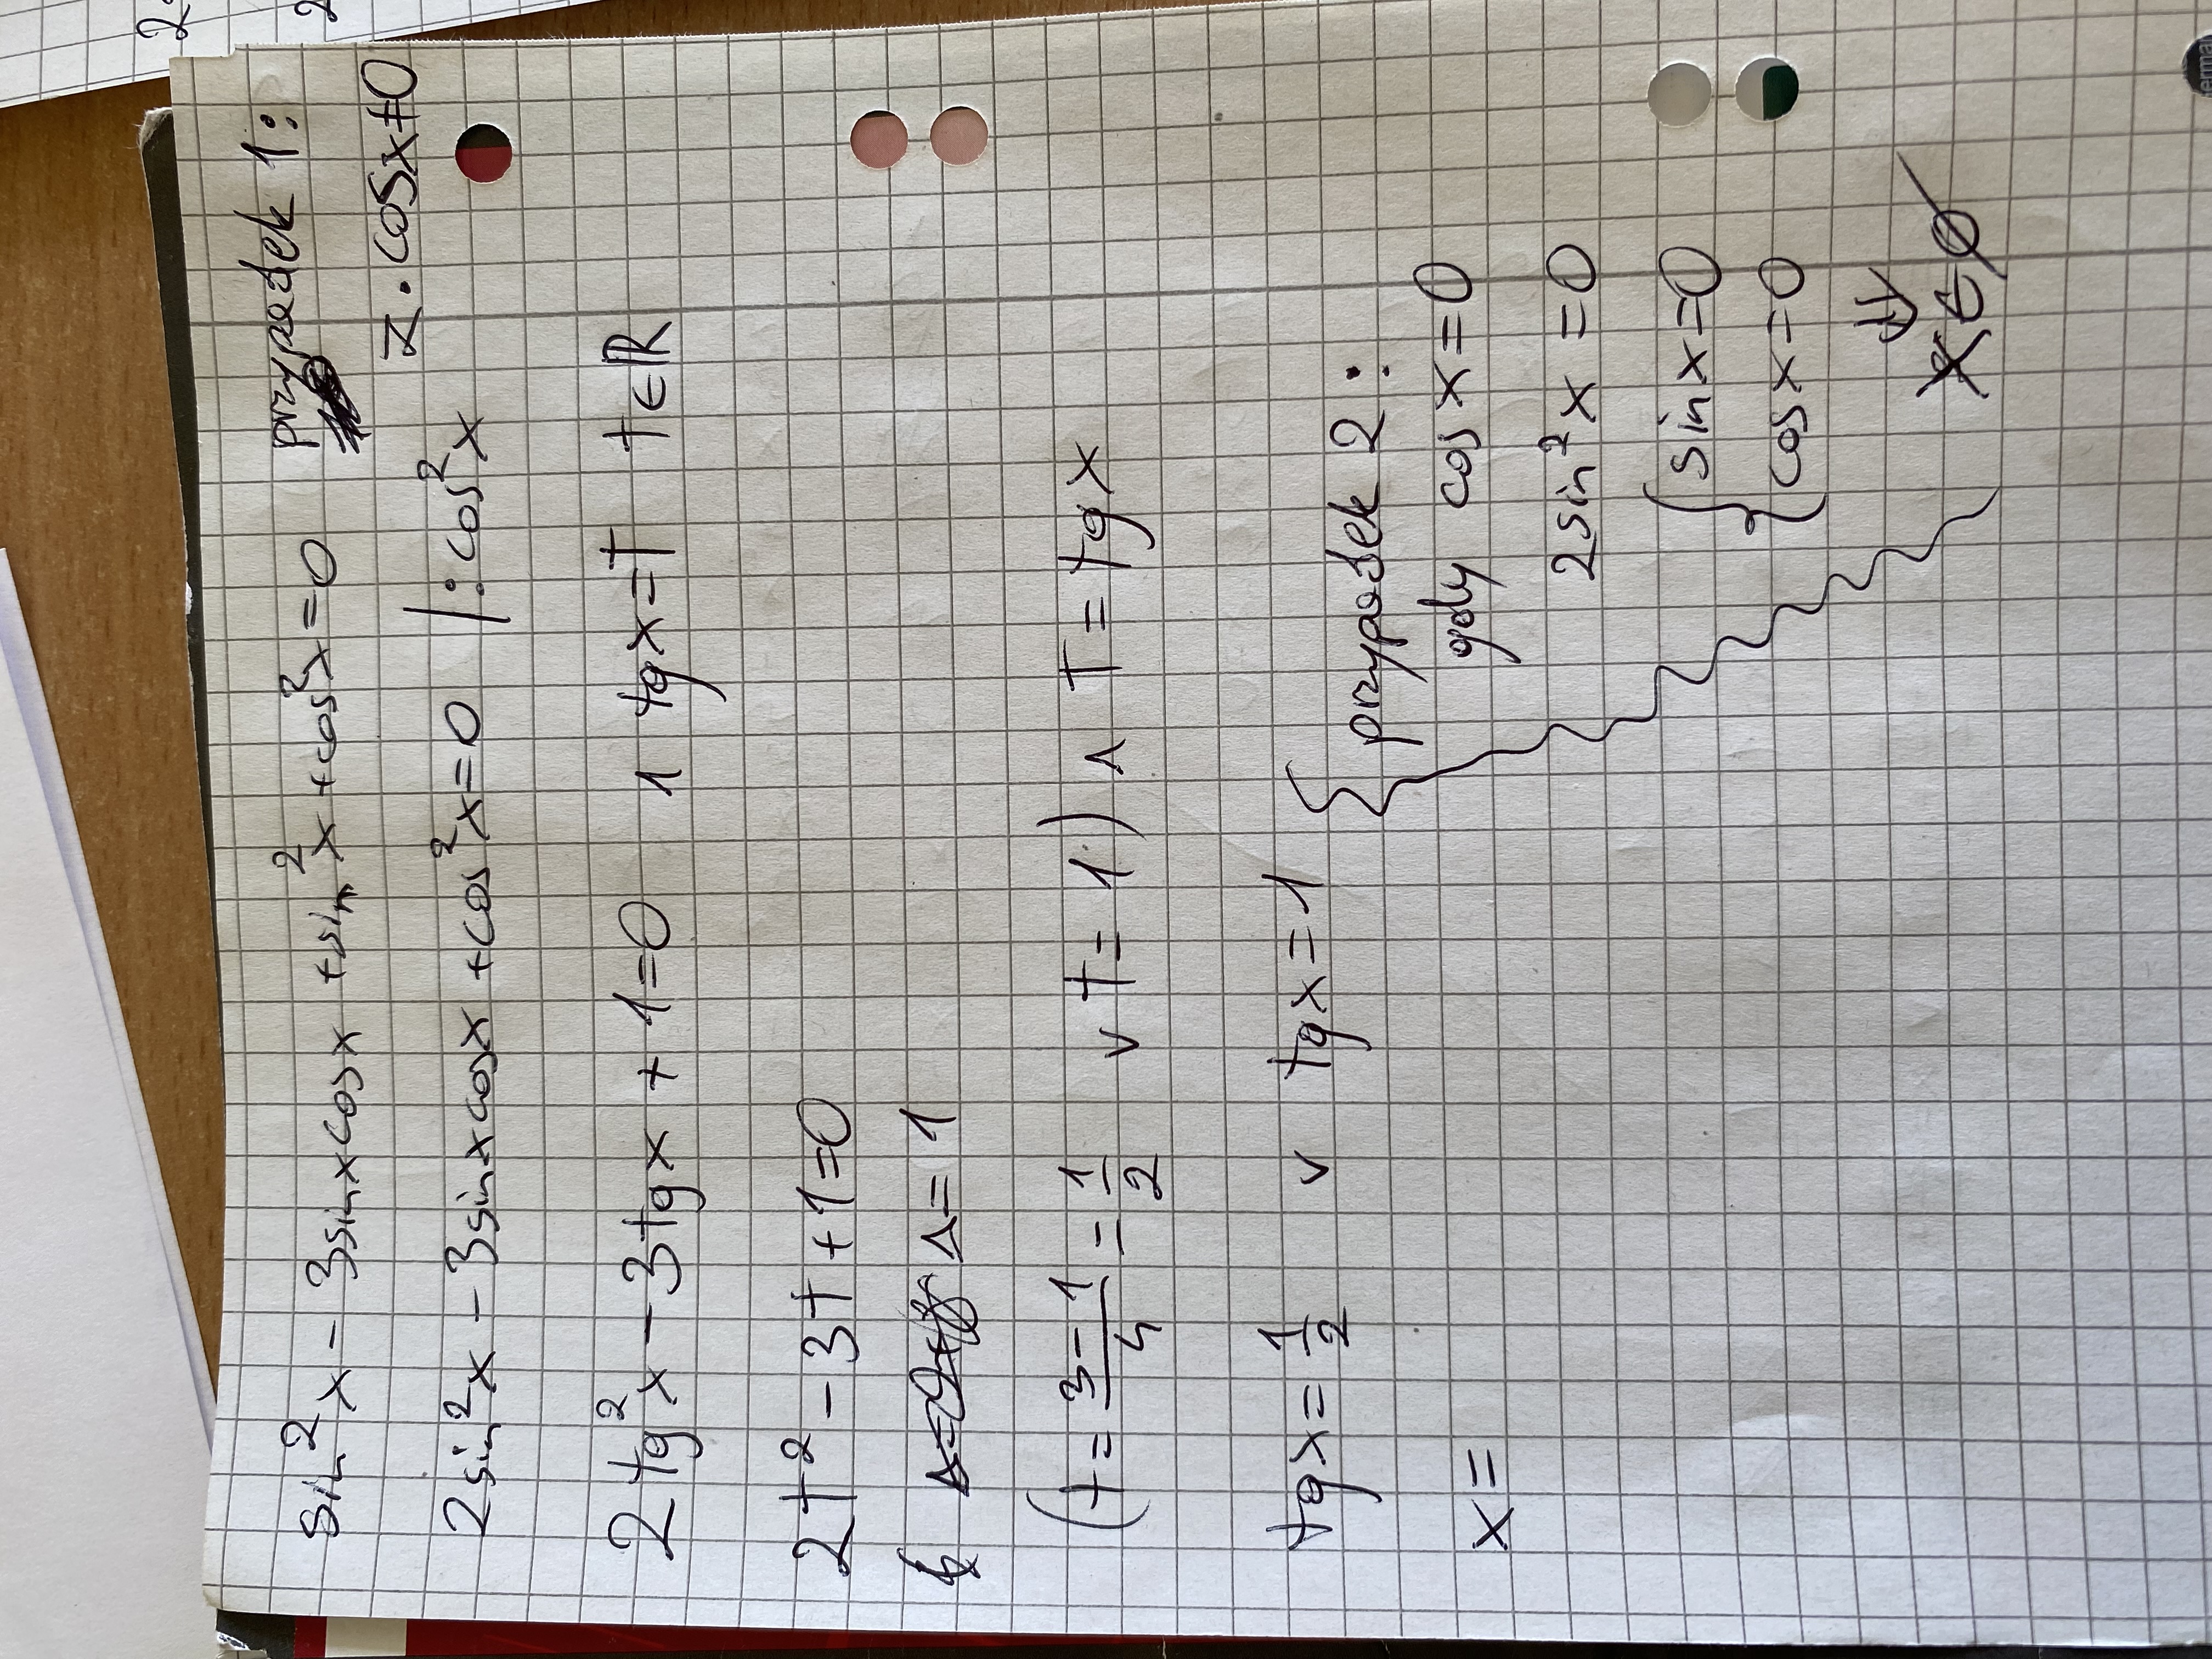 sin²x - 3sinxcosx + sin²x + cos²x = 0
przypadek 1:
z. cosx≠0
2sin²x - 3sinxcosx + cos²x = 0 /:cos²x
2tg²x - 3tgx + 1 = 0 ∧ tgx = t t∈ℝ
2t² - 3t + 1 = 0
Δ = 1
(t = 3-1/4 = 1/2 ∨ t = 1) ∧ t = tgx
tgx = 1/2 ∨ tgx = 1
x =
przypadek 2:
gdy cos x = 0
2sin²x = 0
{ sinx = 0
cosx = 0
⇓
x ∈ ∅